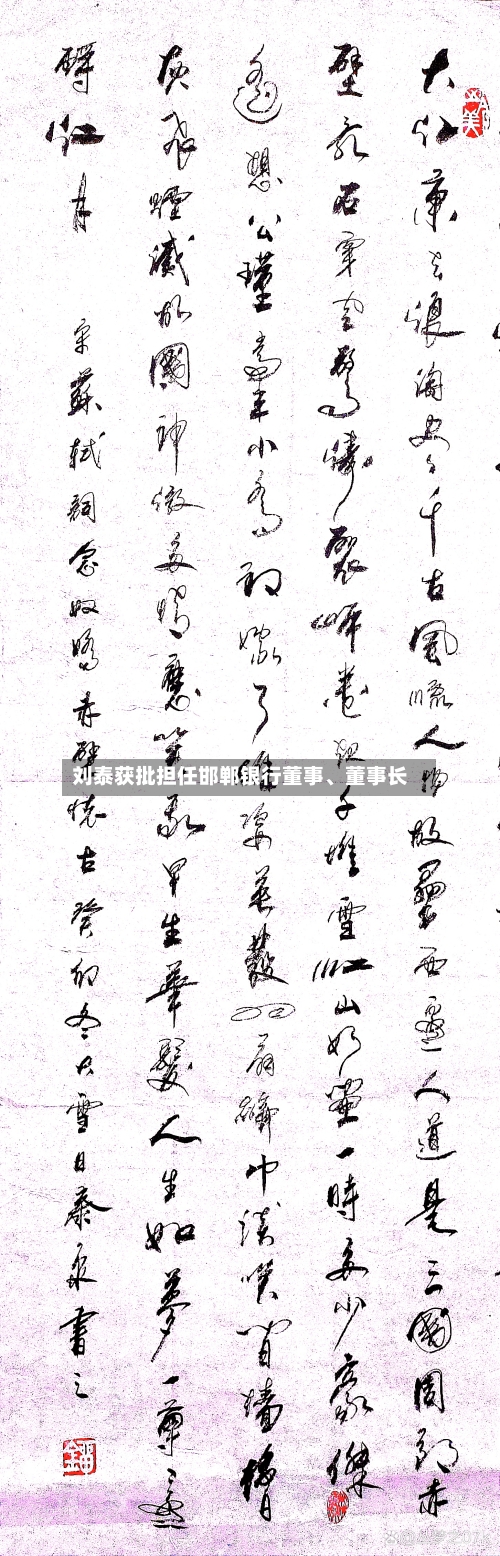 大江東去浪淘盡千古風流人物故壘西邊人道是三國周郎赤
壁亂石穿空驚濤裂岸卷起千堆雪江山如畫一時多少豪傑
遙想公瑾當年小喬初嫁了雄姿英發羽扇綸巾談笑間檣櫓
灰飛煙滅故國神遊多情應笑我早生華髮人生如夢一尊還
酹江月 宋蘇軾詞念奴嬌赤壁懷古癸卯冬大雪日泰泉書之
刘泰获批担任邯郸银行董事、董事长